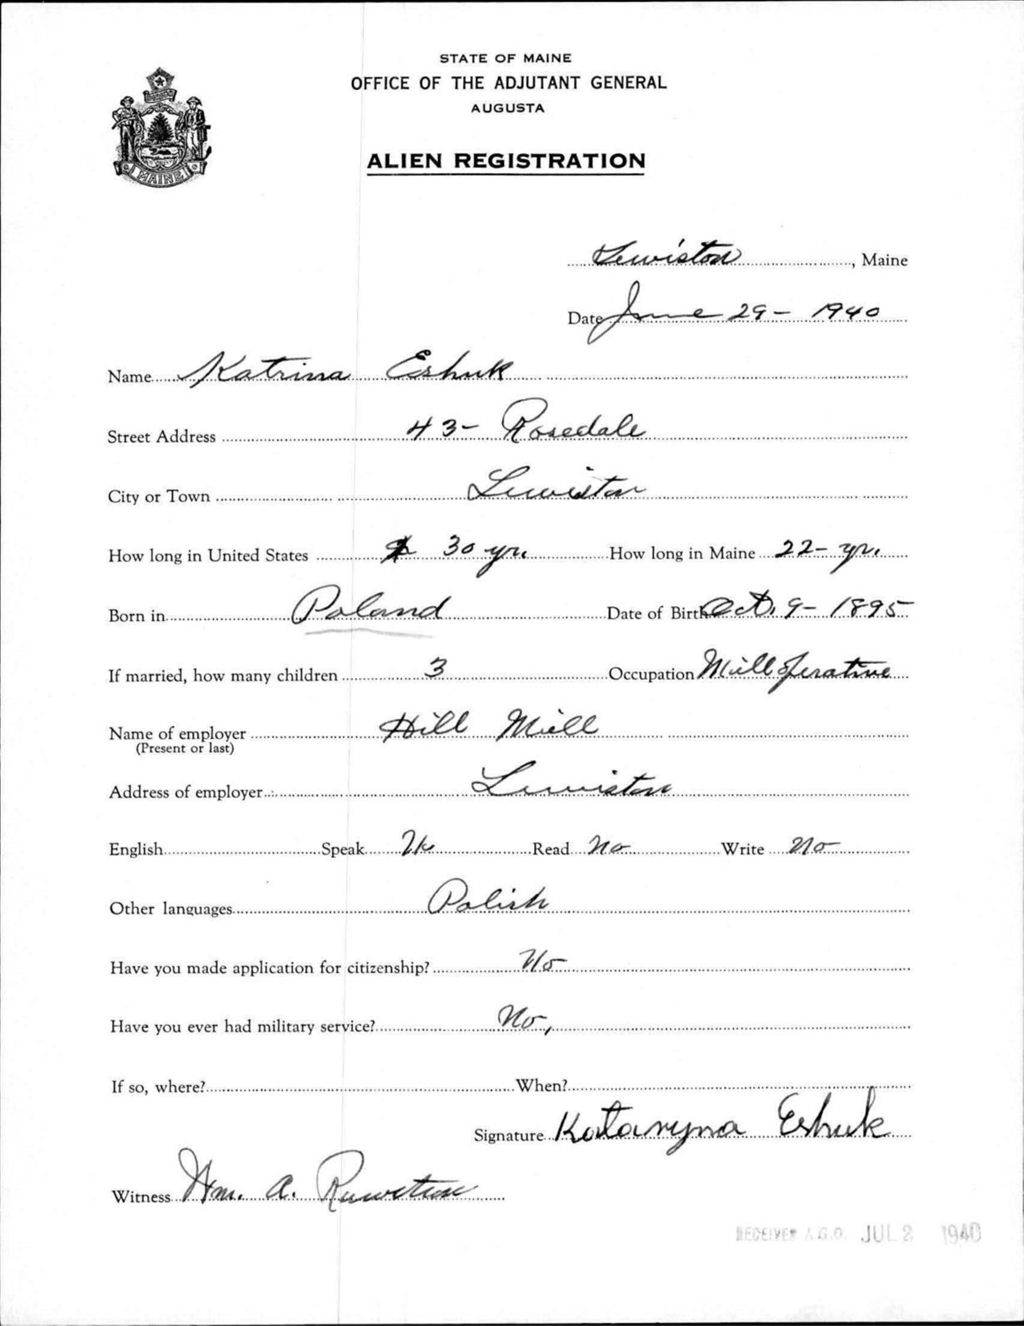 STATE OF MAINE
OFFICE OF THE ADJUTANT GENERAL
AUGUSTA
ALIEN REGISTRATION
MAINE
Lewiston, Maine
Date June 29 - 1940
Name Katrina Eshuk
Street Address 43 - Rosedale
City or Town Lewiston
How long in United States 30 yr. How long in Maine 22 - yr.
Born in Poland Date of Birth Oct. 9 - 1895
If married, how many children 3 Occupation Mill operative
Name of employer Hill Mill
(Present or last)
Address of employer Lewiston
English Speak Read No Write No
Other languages Polish
Have you made application for citizenship? No
Have you ever had military service? No,
If so, where? When?
Signature Kataryna Eshuk
Witness Wm. A.
RECEIVED A.G.O. JUL 2 1940